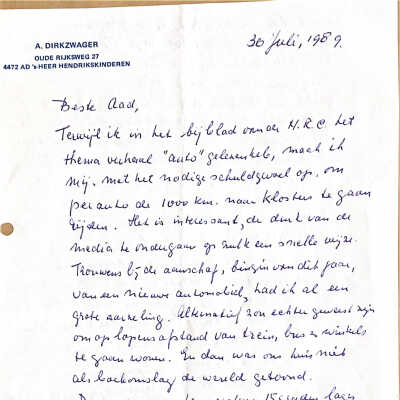 A. DIRKZWAGER
OUDE RIJKSWEG 27
4472 AD 's-HEER HENDRIKSKINDEREN
30 juli, 1989.
Beste Aad,
Terwijl ik in het bijblad van de N.R.C. het
thema verhaal "auto" gelezen heb, maak ik
mij, met het nodige schuldgevoel op, om
per auto de 1000 km. naar Klosters te gaan
rijden. Het is interessant, de druk van de
media te ondergaan op zulk een snelle wijze.
Trouwens bij de aanschaf, begin van dit jaar,
van een nieuwe automobiel, had ik al een
grote aarzeling. Alternatief zou echter geweest zijn
om op lopens afstand van trein, bus en winkels
te gaan wonen. En dan was ons huis niet
als de wereld getoond.
lager